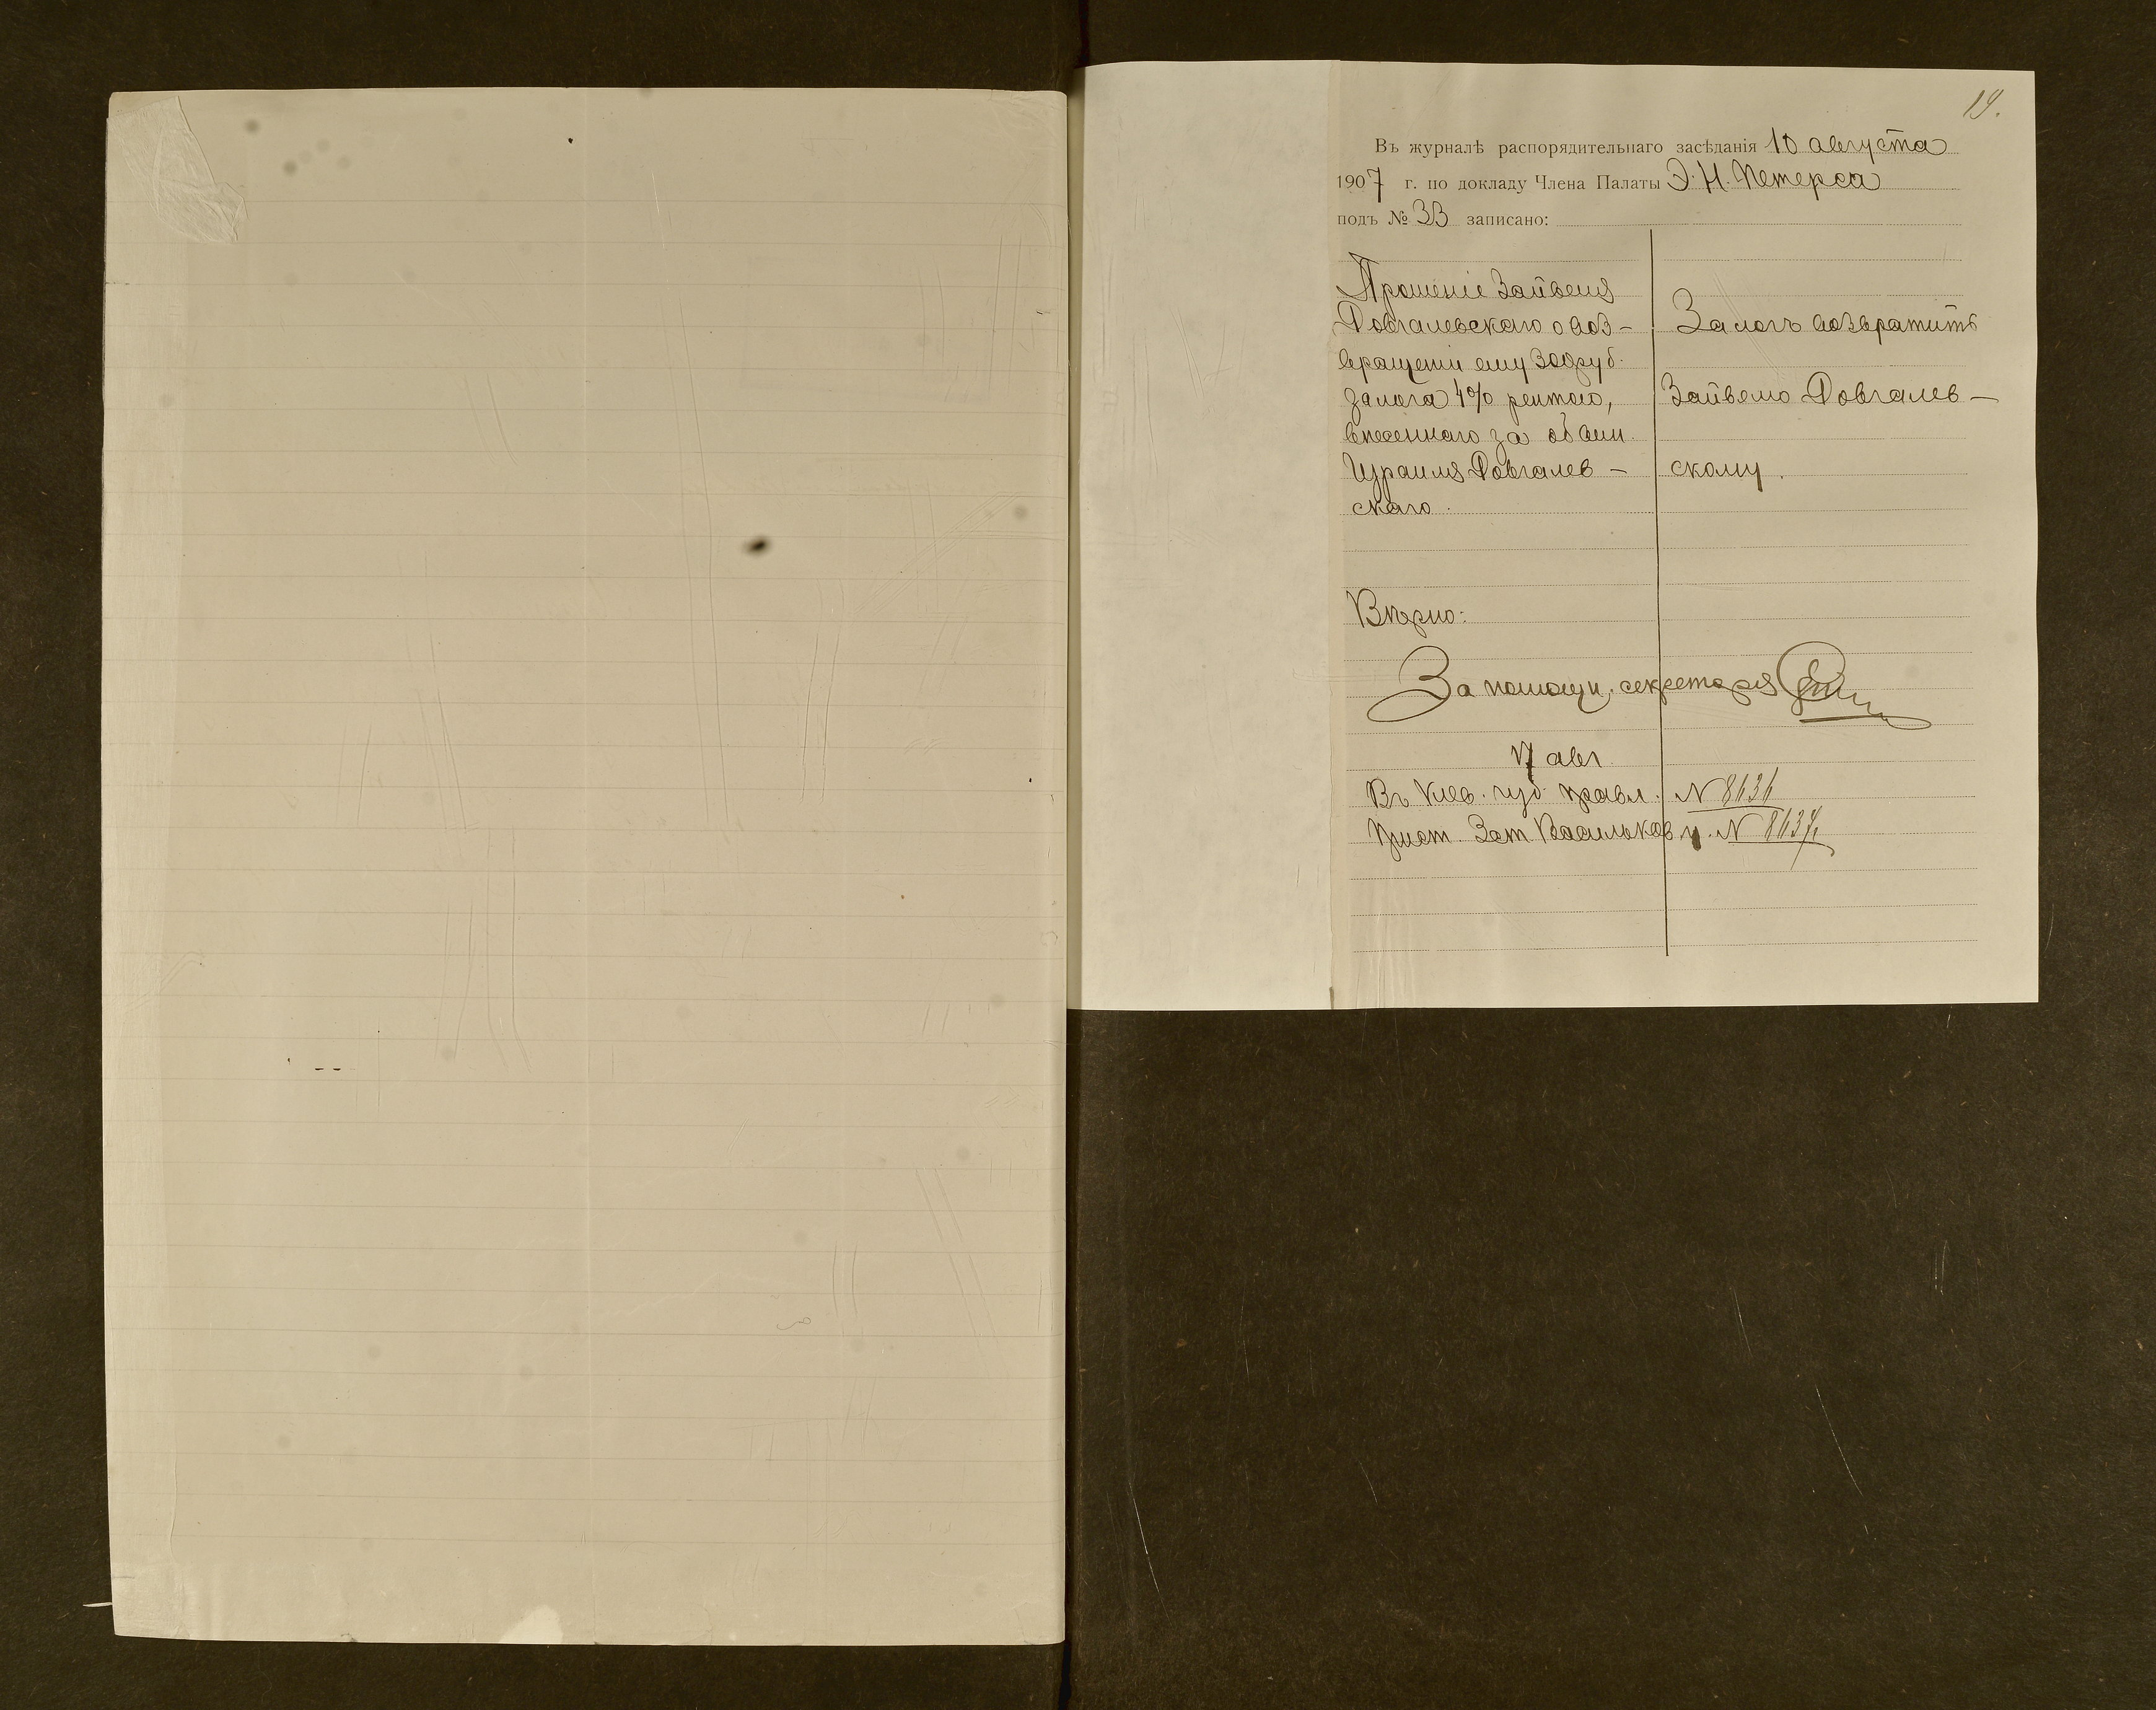 19.
Въ журналѣ распорядительнаго засѣданія 10 августа
1907 г. по докладу Члена Палаты Э. Н. Петерса
подъ № 33 записано:
Прошеніе Зайвеля
Довгалевскаго о воз-
вращеніи ему 300 руб.
залога 4% рентою,
внесеннаго за обвин.
Израиля Довгалев-
скаго.
Залогъ возвратить
Зайвелю Довгалев-
скому.
Вѣрно:
За помощн. секретаря
17 авг.
Въ Кіев. губ. правл. № 8636
Прист. 3 ст. Васильков. у. № 8637